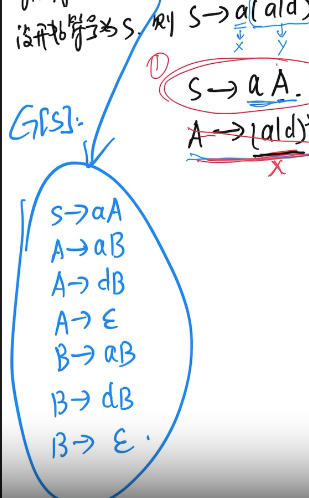 设开始符号为S. 则 S→a(a|d)
x y
① S→aA.
A→(a|d)*
x
G[S]:
S→aA
A→aB
A→dB
A→ε
B→aB
B→dB
B→ε.